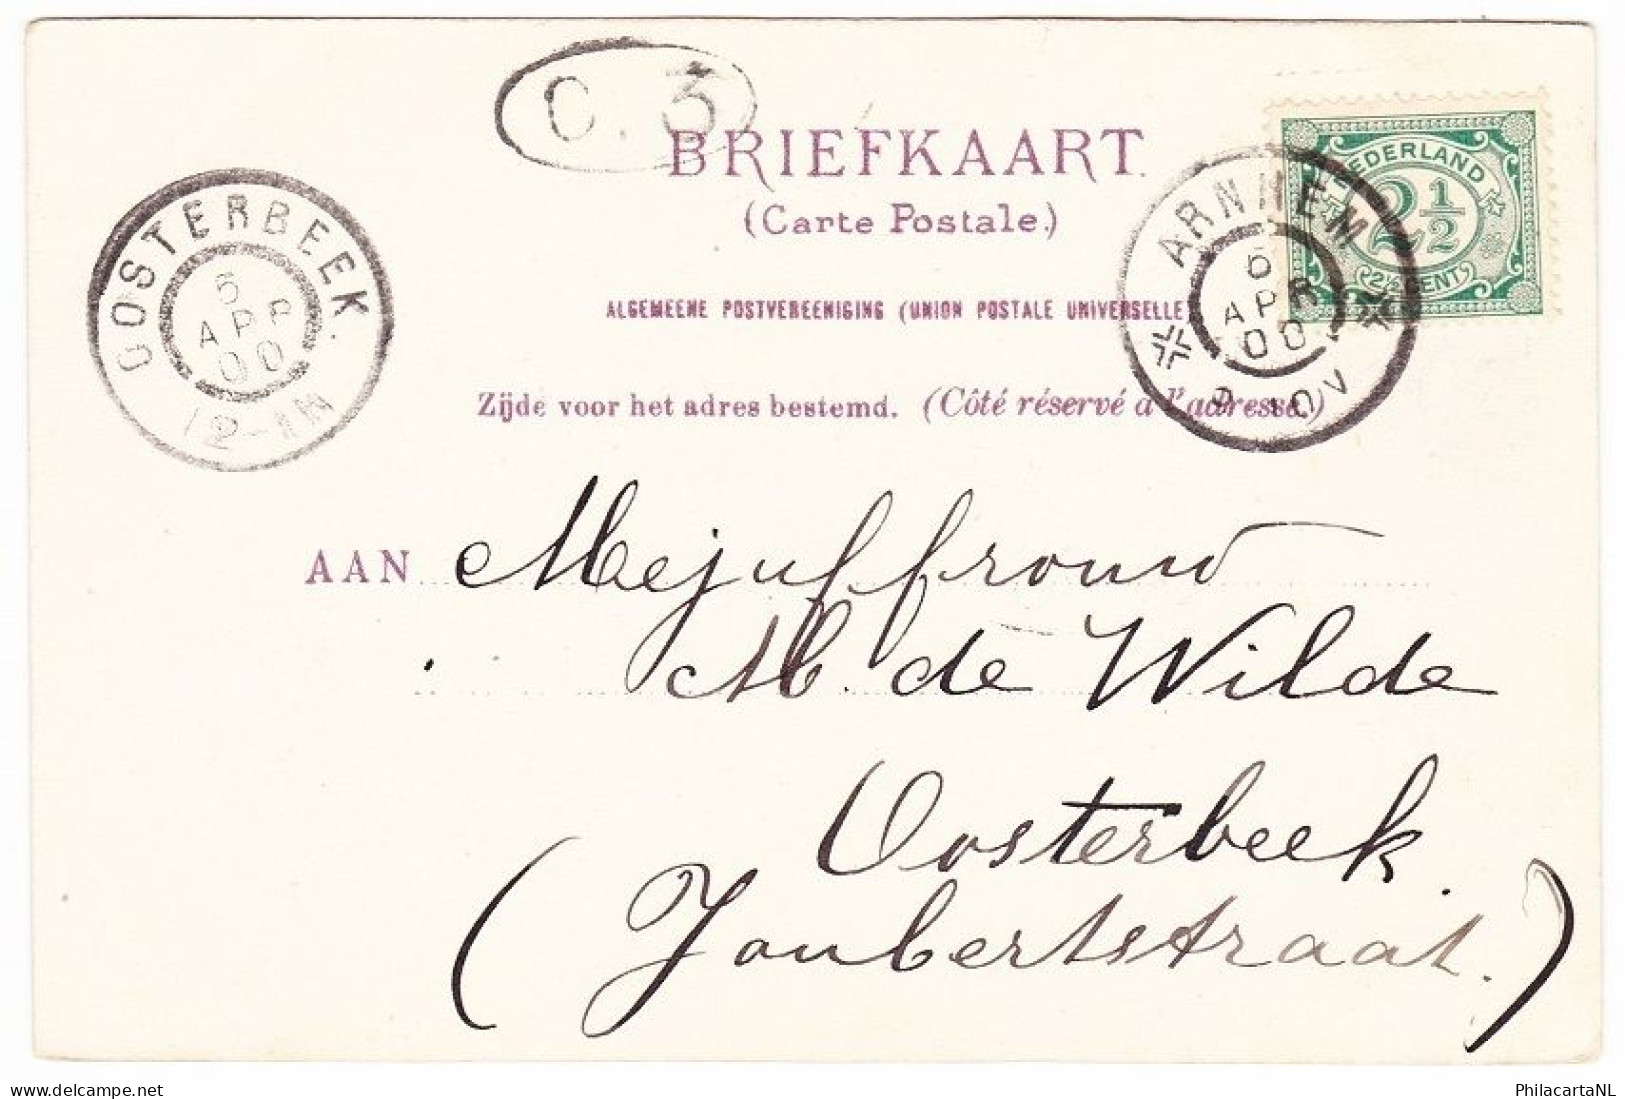 C. 3
BRIEFKAART
(Carte Postale.)
ALGEMEENE POSTVEREENIGING (UNION POSTALE UNIVERSELLE)
Zijde voor het adres bestemd. (Côté réservé à l'adresse.)
OOSTERBEEK
5
APR
00
12-1N
ARNHEM
5
APR
00
9-10V
NEDERLAND
2 1/2
2½ CENT
AAN Mejuffrouw
M. de Wilde
Oosterbeek.
(Joubertstraat.)
PhilacartaNL